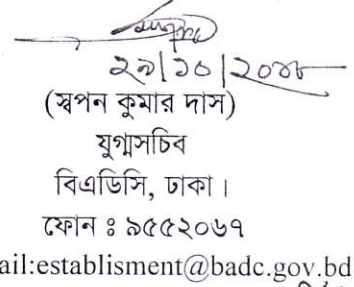 ২৯|১০|২০১৮
(স্বপন কুমার দাস)
যুগ্মসচিব
বিএডিসি, ঢাকা।
ফোন ঃ ৯৫৫২০৬৭
ail:establisment@badc.gov.bd